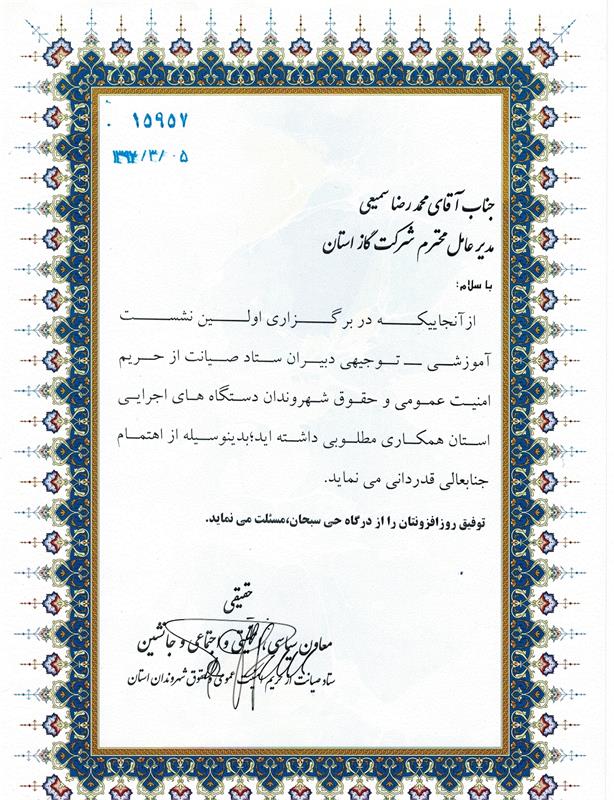 ۱۵۹۵۷
۱۳۹۴/۳/۰۵
جناب آقای محمد رضا سمیعی
مدیر عامل محترم شرکت گاز استان
با سلام؛
از آنجاییکه در برگزاری اولین نشست
آموزشی ـ توجیهی دبیران ستاد صیانت از حریم
امنیت عمومی و حقوق شهروندان دستگاه های اجرایی
استان همکاری مطلوبی داشته اید؛بدینوسیله از اهتمام
جنابعالی قدردانی می نماید.
توفیق روزافزونتان را از درگاه حی سبحان،مسئلت می نماید.
حقیقی
معاون سیاسی، امنیتی و اجتماعی و جانشین
ستاد صیانت از حریم امنیت عمومی و حقوق شهروندان استان